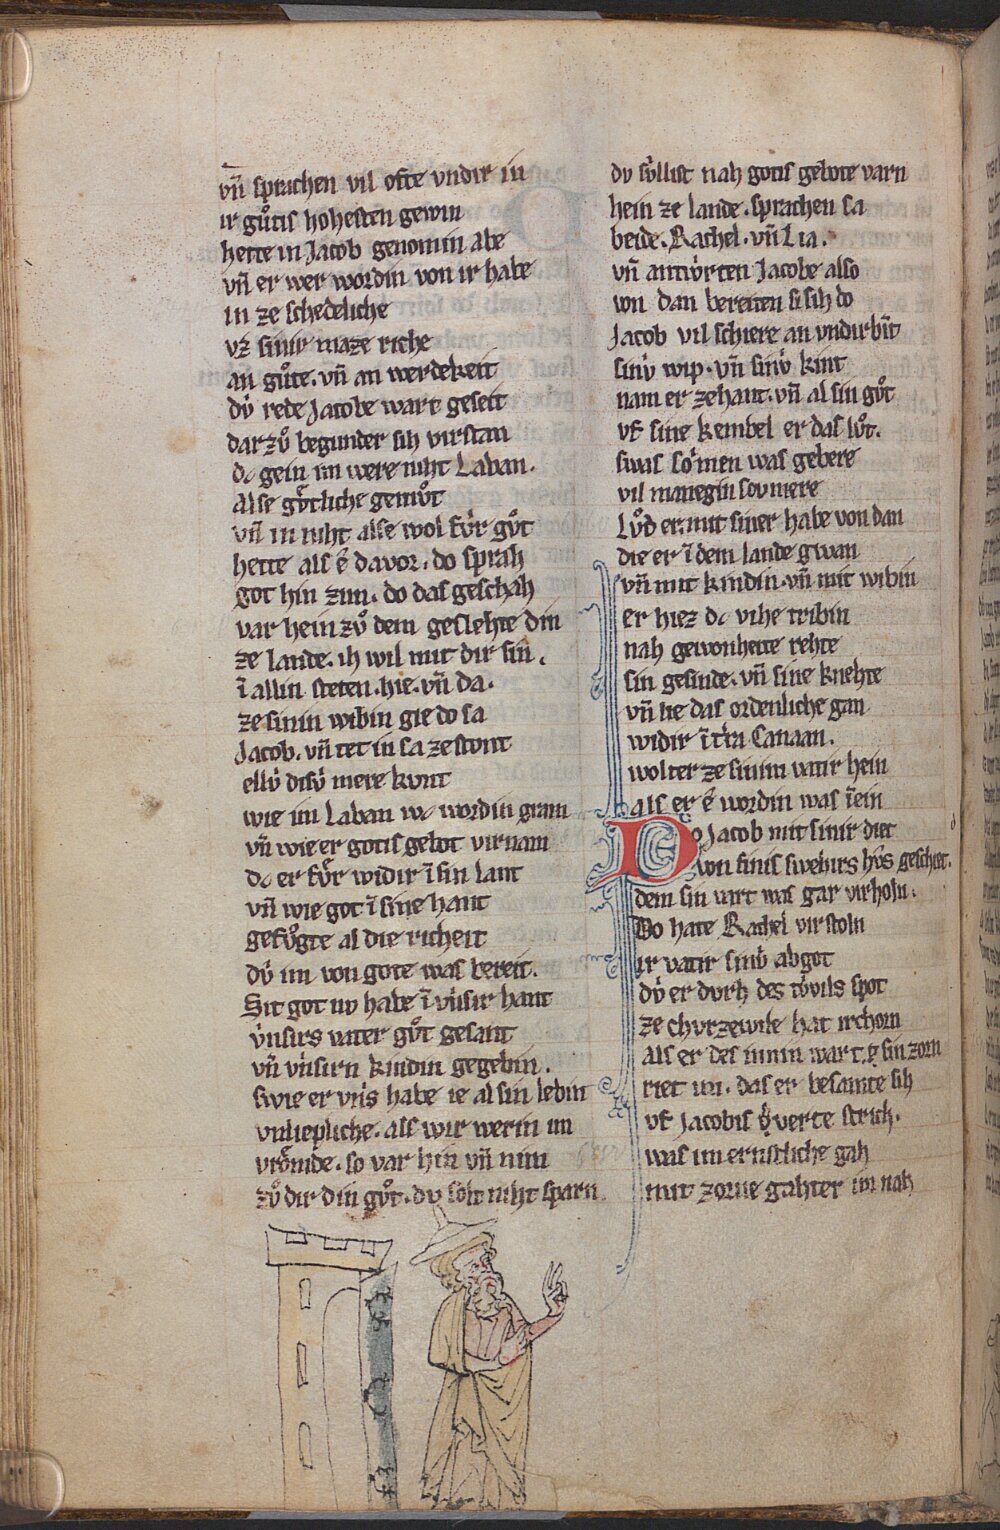 vn̄ sprachen vil ofte vndir in
ir gůtis hohesten gewin
hette in Jacob genomin abe
vn̄ er wer wordin von ir habe
in ze schedeliche
vz sinir maze riche
an gůte. vn̄ an werdekeit
dv́ rede Jacobe wart geseit
darzů begunder sih virstan
dc gein im were niht Laban.
alse gv̊tliche gemůt
vn̄ in niht alse wol fv́r gůt
hette als ê davor. do sprah
got hin zim. do das geschah
var hein zů dem geslehte din
ze lande. ih wil mit dir sin.
ī allin steten. hie. vn̄ da.
ze sinin wibin gie do sa
Jacob. vn̄ tet in sa ze stont
ellv́ disv́ mere kvnt
wie im Laban wc wordin gram
vn̄ wie er gotis gebot virnam
dc er fv̊r widir ī sin lant
vn̄ wie got ī sine hant
gefv̊gte al die richeit
dv́ im von gote was bereit.
Sit got nv habe ī vnsir hant
v́nsirs vater gůt gesant
vn̄ v́nsirn kindin gegebin.
swie er vn̄s habe ie al sin lebin
vnliepliche. als wir werin im
vrômde. so var hin vn̄ nim
zů dir din gůt. dv solt niht sparn
dv sv́llist nah gotis gebote varn
hein ze lande. sprachen sa
beide. Rachel. vn̄ Lia.
vn̄ antwv́rten Jacobe also
von dan bereiten si sih do
Jacob vil schiere an vndirbīt
sinv́ wip. vn̄ sinv́ kint
nam er zehant. vn̄ al sin gůt
vf sine kembel er das lůt.
swas sômen was gebere
vil manegin sovmere
Lůd er. mit siner habe von dan
die er ī dem lande gwan
vn̄ mit kindin. vn̄ mit wibin
er hiez dc vihe tribin
nah gewonheite rehte
sin gesinde. vn̄ sine knehte
vn̄ lie das ordenliche gan
widir ī t'ra Canaan.
wolt er ze sinim vatir hein
als er ê wordin was īein
Do Jacob mit sinir diet
von sinis swehirs hv̊s geschiet.
dem sin vart was gar virholn.
Do hate Rachel virstoln
ir vatir sinv́ abgot
dv́ er dvrh des tv́vils spot
ze chvrzewile hat irchorn
als er des innin wart. sin zorn
riet im. das er besamte sih
vf Jacobis verte strich.
was im ernstliche gah
mit zorne gahter im nah